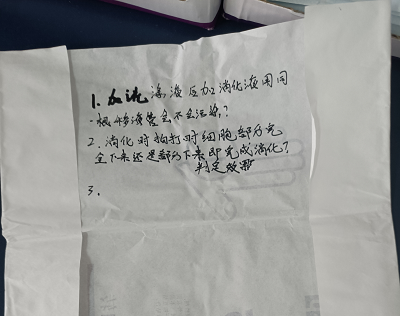 1. 加洗涤液后加消化液用同
一根移液管会不会污染？
2. 消化时拍打时细胞部分完
全下来还是部分下来即完成消化？
判定效果
3.